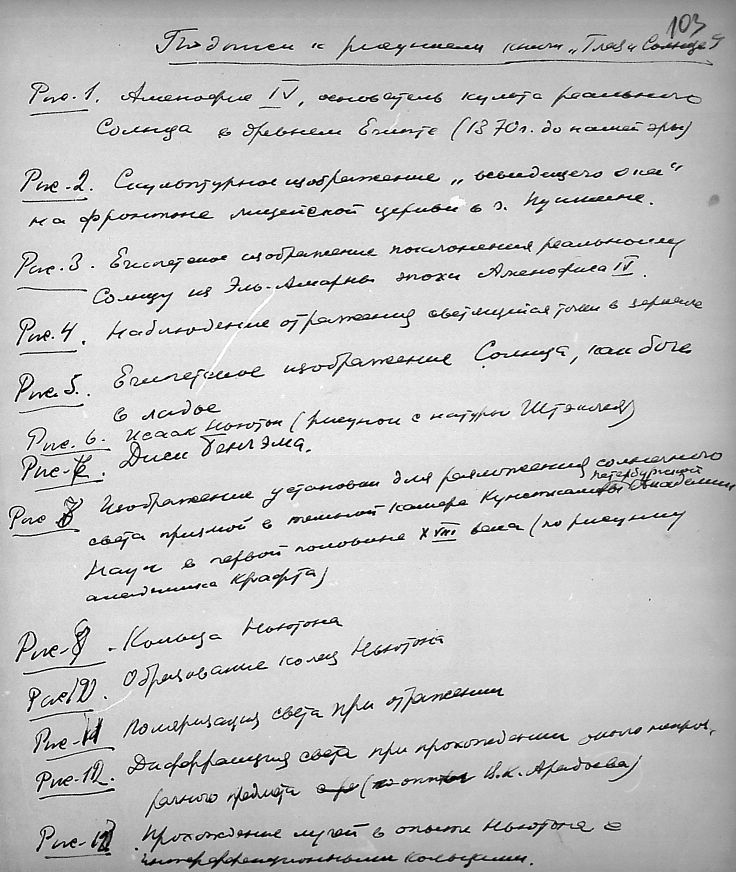 103
Подписи к рисункам книги „Глаз и Солнце"
Рис. 1. Аменофис IV, основатель культа реального
Солнца в древнем Египте (1370 г. до нашей эры)
Рис. 2. Скульптурное изображение „всевидящего ока"
на фронтоне лицейской церкви в г. Пушкине.
Рис. 3. Египетское изображение поклонения реальному
Солнцу из Эль-Амарны эпохи Аменофиса IV.
Рис. 4. Наблюдение отражения светящейся точки в зеркале
Рис. 5. Египетское изображение Солнца, как бога
в ладье
Рис. 6. Исаак Ньютон (рисунок с натуры Штэклея)
Рис. 7. Диск Бенхэма.
Рис. 8 Изображение установки для разложения солнечного
света призмой в темной камере Кунсткамеры Петербургской Академии
Наук в первой половине XVIII века (по рисунку
академика Крафта)
Рис. 9. Кольца Ньютона
Рис. 10. Образование колец Ньютона
Рис. 11 Поляризация света при отражении
Рис. 12. Диффракция света при прохождении около непроз-
рачного предмета (по В.К. Аркадьева)
Рис. 13. Прохождение лучей в опыте Ньютона с
интерференционными кольцами.